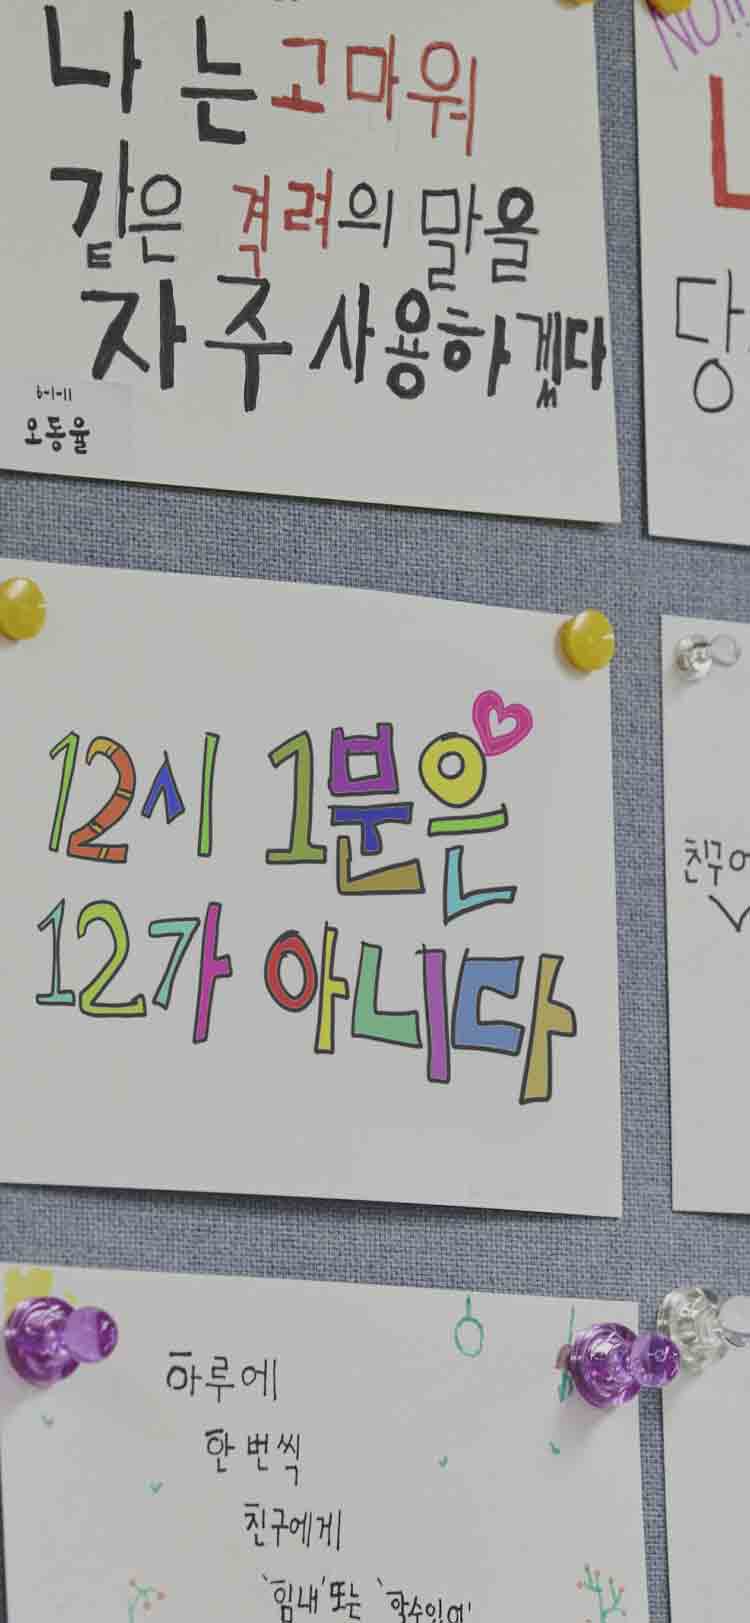 나는 고마워
같은 격려의 말을
자주 사용하겠다
6-1-11
오동율
NO!!
당
12시 1분은
12가 아니다
친구에
하루에
한 번씩
친구에게
'힘내' 또는 '할 수 있어'